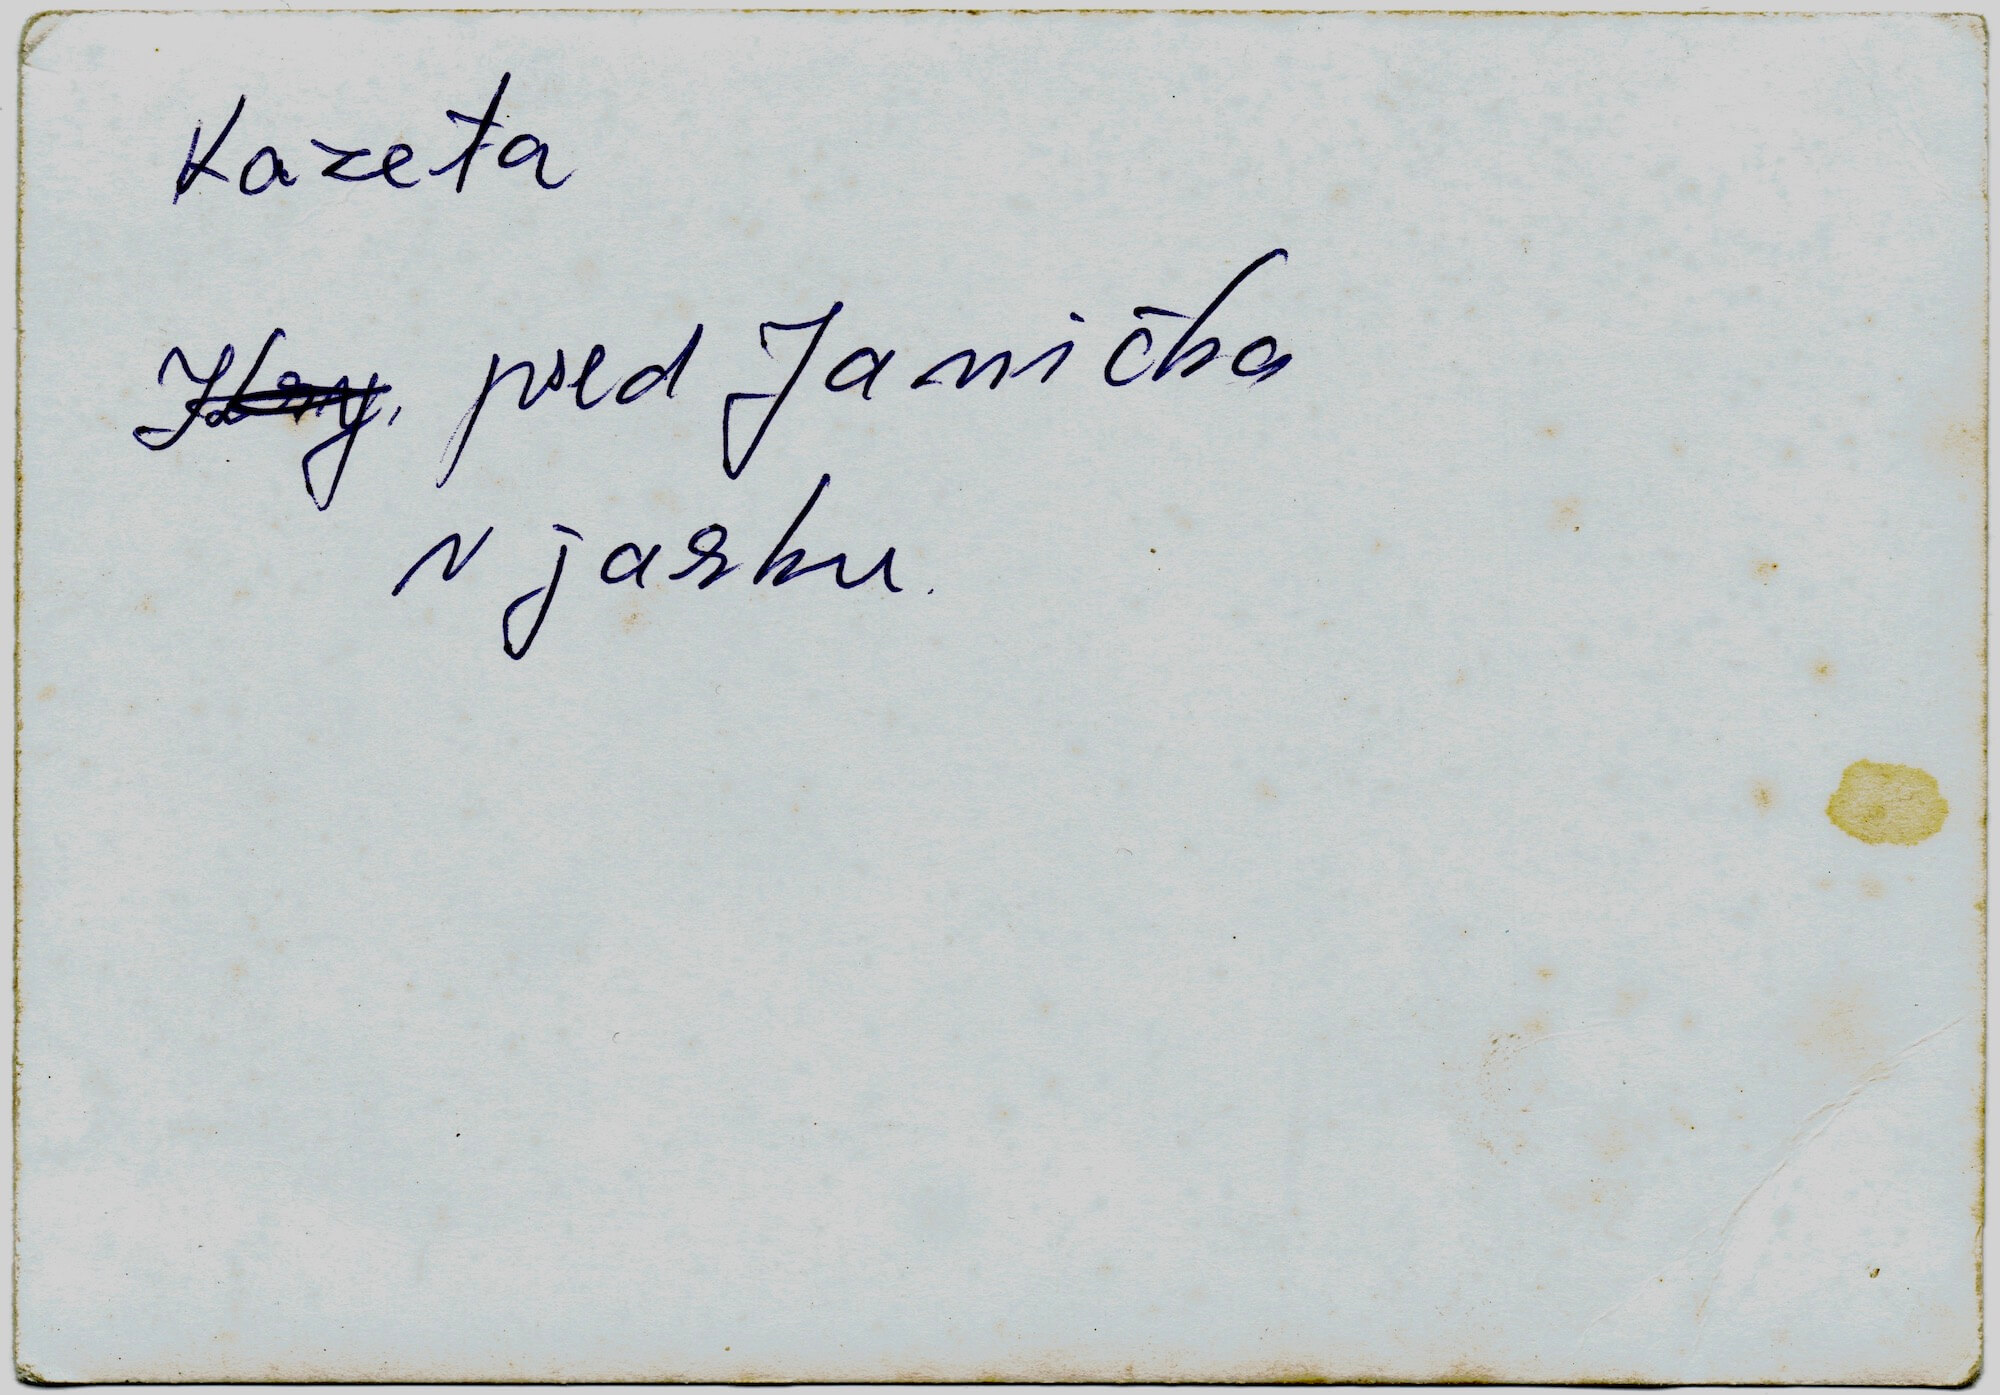 Kazeta
pred Janička
v jasku.